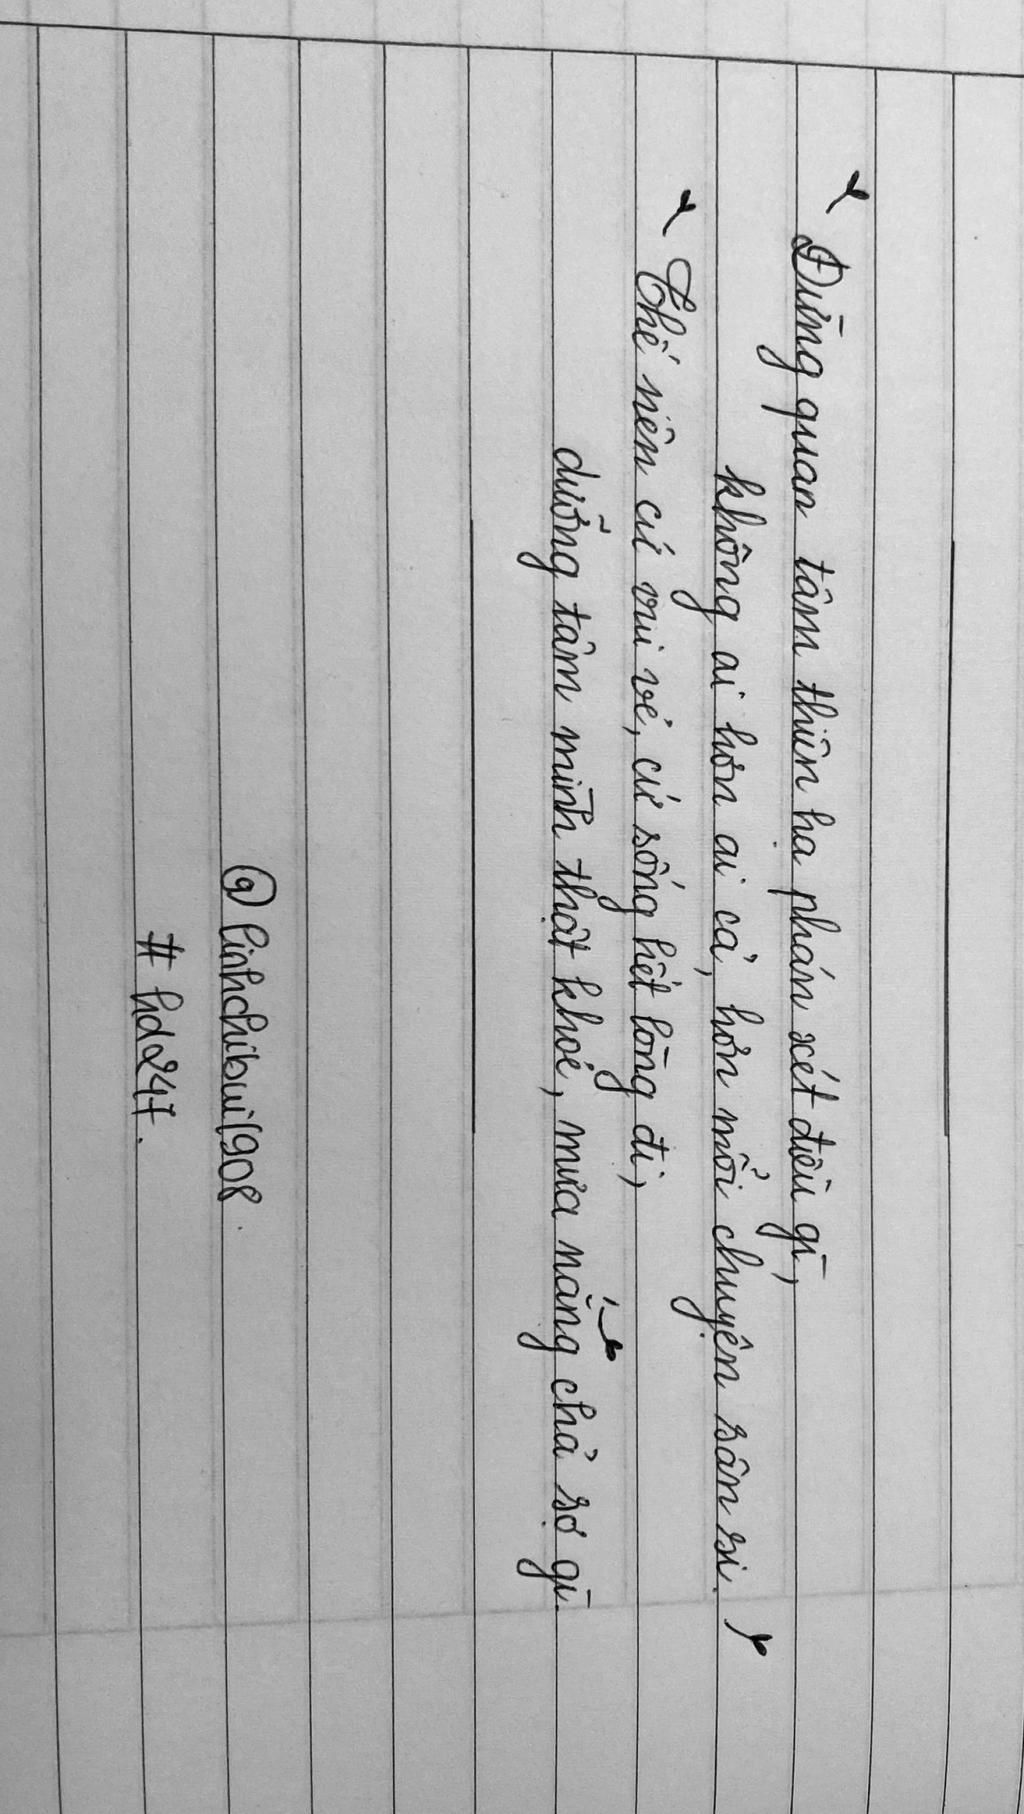 Đừng quan tâm thiên hạ phán xét điều gì,
không ai hơn ai cả, hơn mỗi chuyện sân si.
Thế nên cứ vui vẻ, cứ sống hết lòng đi,
dưỡng tâm mình thật khoẻ, mưa nắng chả sợ gì.
@linhchibui1908.
#hd247.